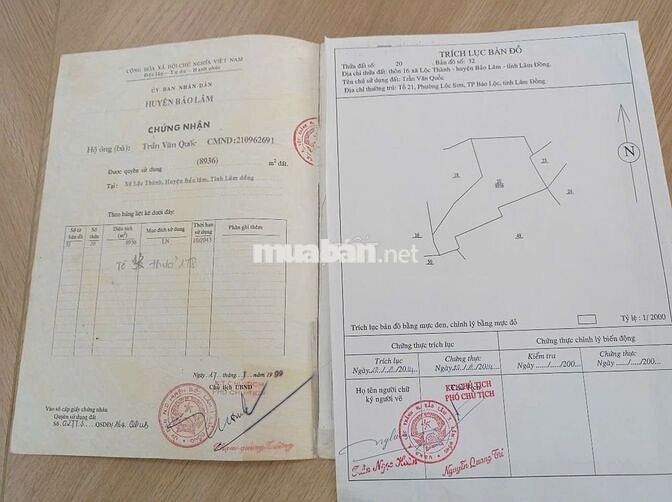 CỘNG HÒA XÃ HỘI CHỦ NGHĨA VIỆT NAM
Độc lập - Tự do - Hạnh phúc
ỦY BAN NHÂN DÂN
HUYỆN BẢO LÂM
CHỨNG NHẬN
Hộ ông (bà): Trần Văn Quốc CMND:210962691
Được quyền sử dụng (8936) m² đất.
Tại: Xã Lộc Thành, Huyện Bảo lâm, Tỉnh Lâm đồng
Theo bảng liệt kê dưới đây:
Số tờ bản đồ Số thửa Diện tích (m²) Mục đích sử dụng Thời hạn sử dụng Phần ghi thêm
32 20 8936 LN 10/2043
Ngày 17 tháng 1 năm 1999
Chủ tịch UBND
Vào sổ cấp giấy chứng nhận
Quyền sử dụng đất
Số QSDĐ/
TRÍCH LỤC BẢN ĐỒ
Thửa đất số: 20 Bản đồ số: 32
Địa chỉ thửa đất: thôn 16 xã Lộc Thành - huyện Bảo Lâm - tỉnh Lâm Đồng.
Tên chủ sử dụng đất: Trần Văn Quốc
Địa chỉ thường trú: Tổ 21, Phường Lộc Sơn, TP Bảo Lộc, tỉnh Lâm Đồng
N
20
8936
muaban.net
Tỷ lệ: 1/ 2000
Trích lục bản đồ bằng mực đen, chỉnh lý bằng mực đỏ
Chứng thực trích lục Chứng thực chỉnh lý biến động
Trích lục Chứng thực Kiểm tra Chứng thực
Ngày Ngày Ngày....../....../200... Ngày....../....../200...
Họ tên người chữ
ký người vẽ
KT.CHỦ TỊCH
PHÓ CHỦ TỊCH
Trần Ngọc Huấn
Nguyễn Quang Trí